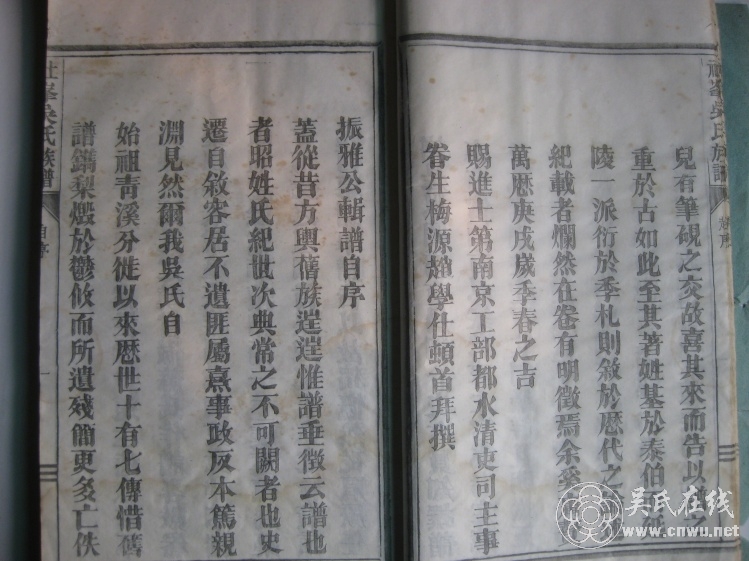 兒有筆硯之交故喜其來而告以
重於古如此至其著姓基於泰伯
陵一派衍於季札則敘於歷代之
紀載者爛然在卷有明徵焉余奚
萬歷庚戌歲季春之吉
賜進士第南京工部都水清吏司主事
眷生梅源趙學仕頓首拜撰
振雅公輯譜自序
蓋從昔方輿舊族遑遑惟譜垂徵云譜也
者昭姓氏紀世次典常之不可闕者也史
遷自敘客居不遺匪屬熹事政反本篤親
淵見然爾我吳氏自
始祖青溪分徙以來歷世十有七傳惜舊
譜鐫梨燬於鬱攸而所遺殘簡更多亡佚
峯吳氏族譜
自序
吳氏在线
www.cnwu.net